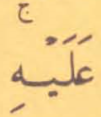 عَلَيْهِۚ